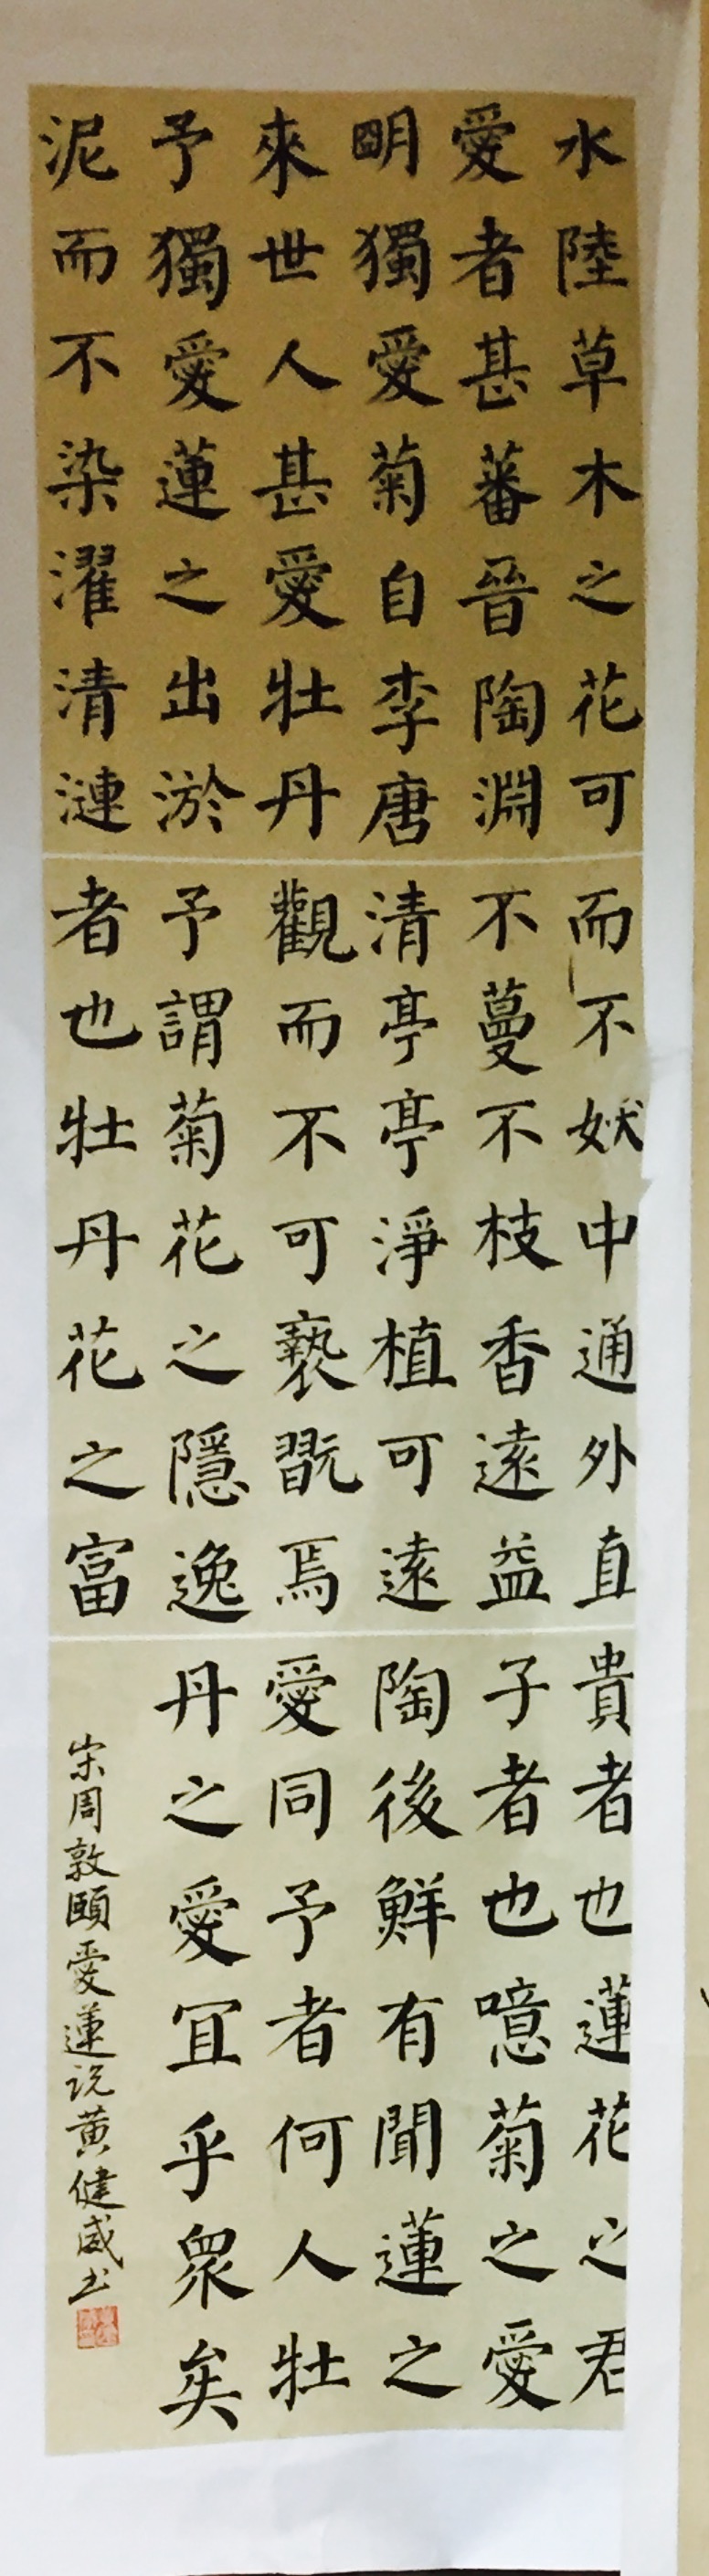 水陸草木之花可
愛者甚蕃晉陶淵
明獨愛菊自李唐
來世人甚愛牡丹
予獨愛蓮之出淤
泥而不染濯清漣
而不妖中通外直
不蔓不枝香遠益
清亭亭淨植可遠
觀而不可褻翫焉
予謂菊花之隱逸
者也牡丹花之富
貴者也蓮花之君
子者也噫菊之愛
陶後鮮有聞蓮之
愛同予者何人牡
丹之愛宜乎眾矣
宋周敦頤愛蓮说黄健咸书